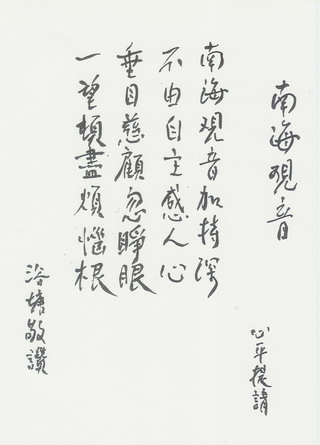 南海观音
心平提請
南海观音加持深
不由自主感人心
垂目慈顧忽睜眼
一望頓盡煩惱根
浴塘敬讚